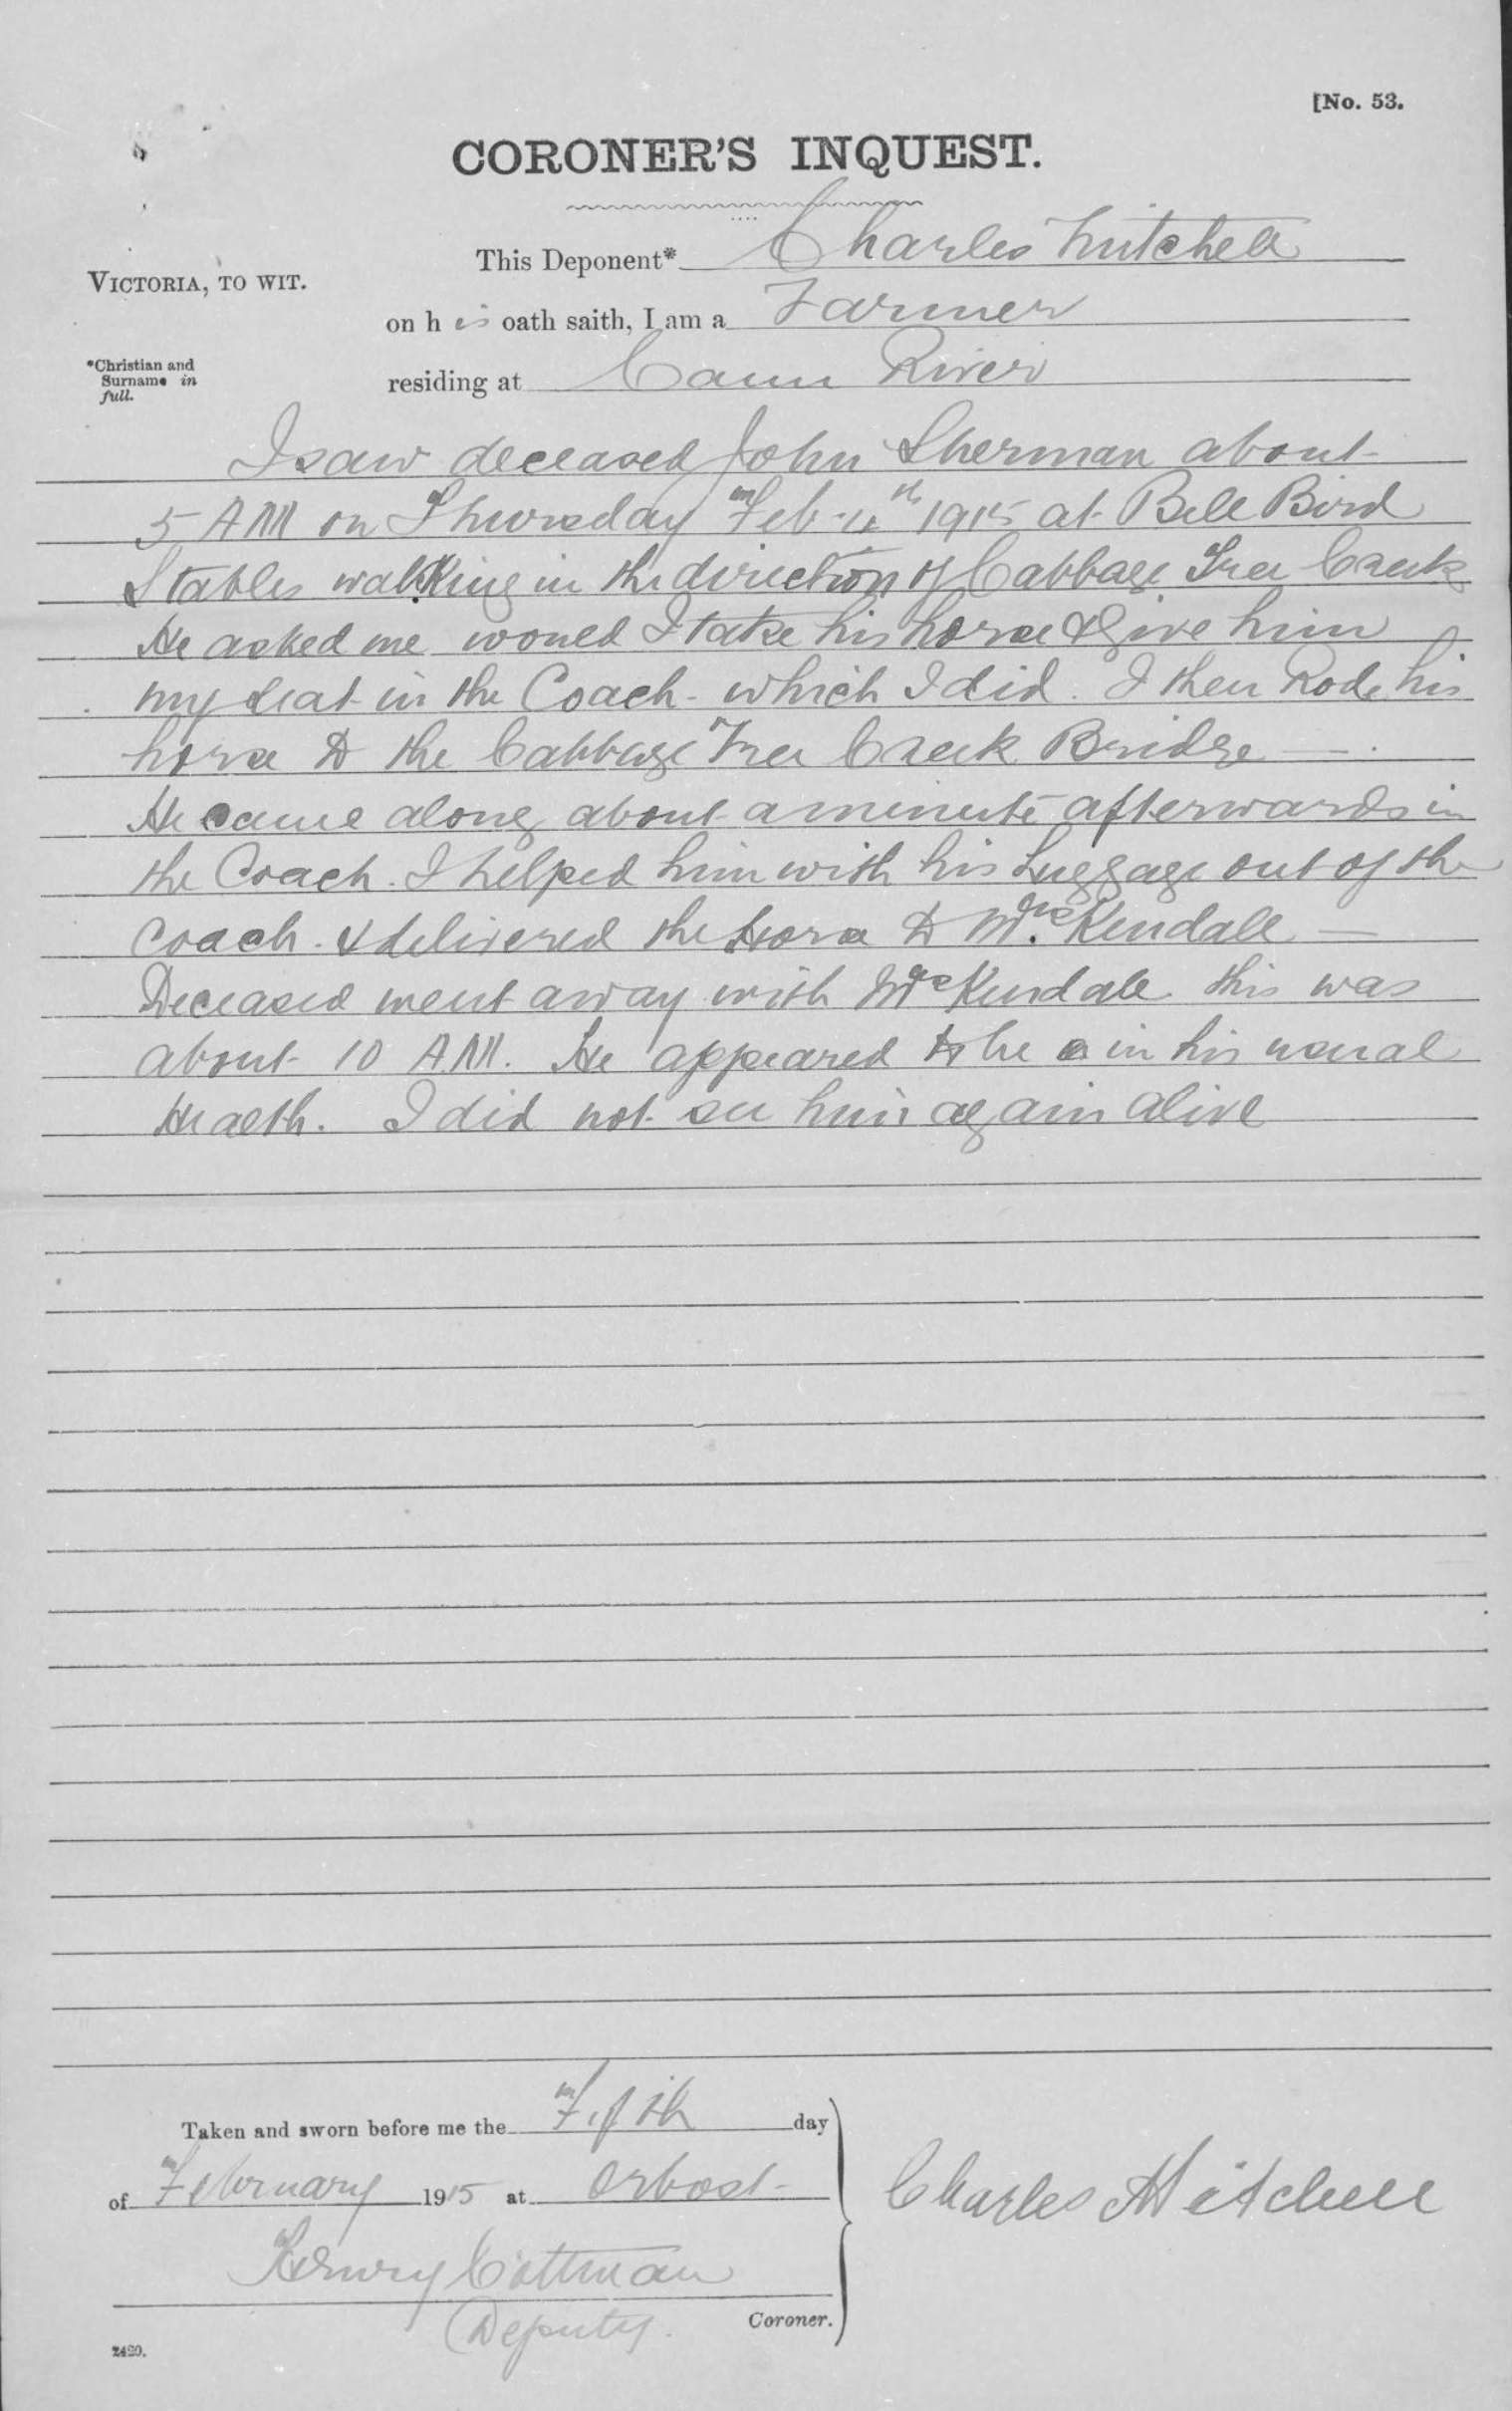 [No. 53.
CORONER'S INQUEST.
This Deponent* Charles Mitchell
VICTORIA, TO WIT.
on his oath saith, I am a Farmer
*Christian and
Surname in
full.
residing at Cann River
I saw deceased John Sherman about
5 AM on Thursday Feb. 4th 1915 at Bell Bird
Stables walking in the direction of Cabbage Tree Creek
He asked me would I take his horse & give him
my seat in the Coach - which I did. I then Rode his
horse to the Cabbage Tree Creek Bridge —.
He came along about a minute afterwards in
the Coach. I helped him with his Luggage out of the
Coach. & delivered the Horse to Mr. Kendall —
Deceased went away with Mr Kendall this was
about 10 AM. He appeared to be in his usual
Health. I did not see him again alive
Taken and sworn before me the Fifth day
of February 1915 at Orbost
Charles Mitchell
Henry Cottman
Deputy Coroner.
2420.